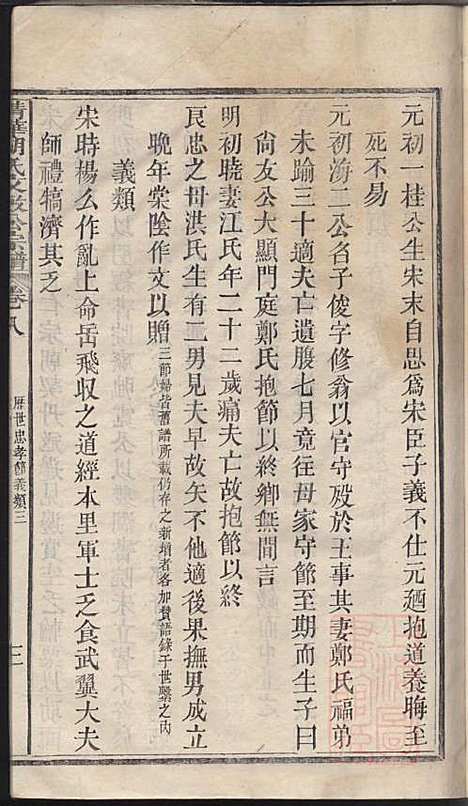 元初一桂公生宋末自思爲宋臣子義不仕元廼抱道養晦至
死不易
元初海二公名子俊字修翁以官守歿於王事其妻鄭氏福弟
未踰三十適夫亡遺腹七月竟往母家守節至期而生子曰
尚友公大顯門庭鄭氏抱節以終鄉無間言
明初曉妻江氏年二十二歲痛夫亡故抱節以終
良忠之母洪氏生有二男見夫早故矢不他適後果撫男成立
晚年棠陰作文以贈三節婦皆舊譜所載仍存之新增者各加贊語錄于世繫之內
義類
宋時楊么作亂上命岳飛収之道經本里軍士乏食武翼大夫
師禮犒濟其乏
清華胡氏文敏公宗譜 卷八 歷世忠孝節義類三 三